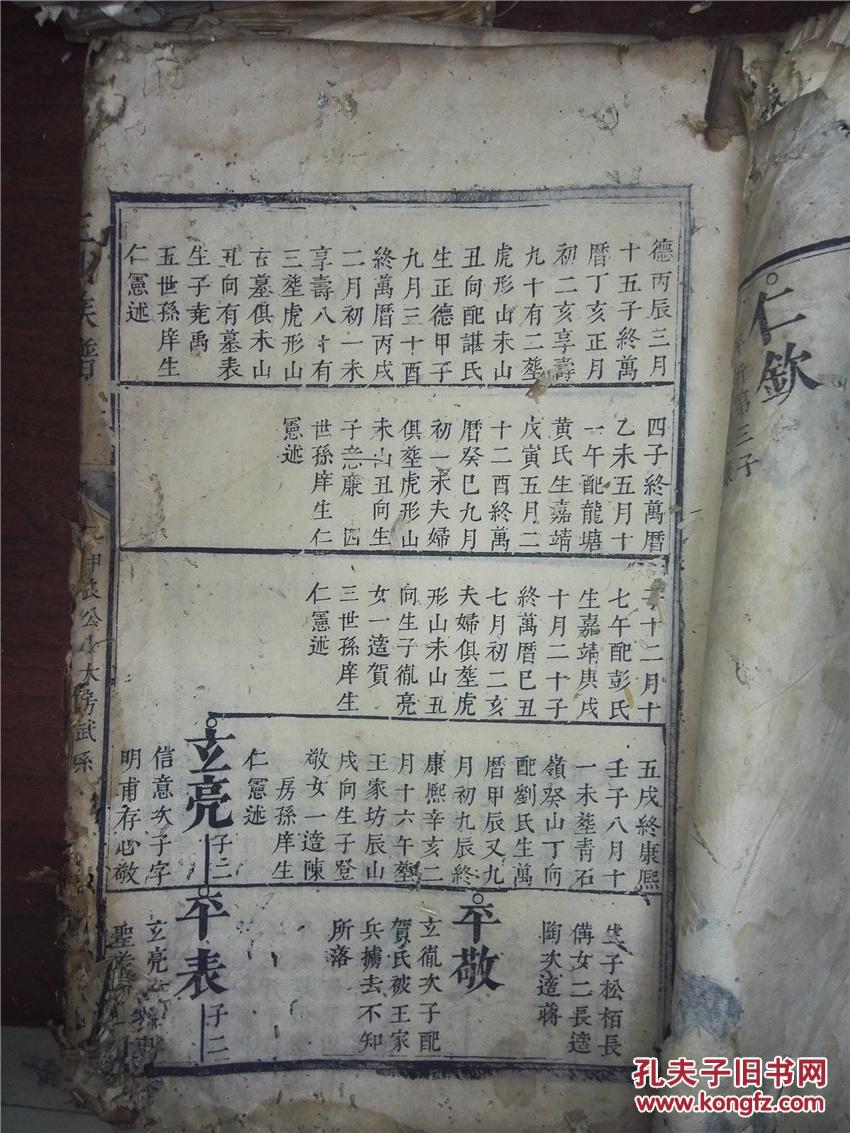 德丙辰三月
十五子終萬
曆丁亥正月
初二亥享壽
九十有二塟
虎形山未山
丑向配諶氏
生正德甲子
九月三十酉
終萬曆丙戌
二月初一未
享壽八十有
三塟虎形山
古墓俱未山
丑向有墓表
生子堯禹
五世孫庠生
仁憲述
四子終萬曆
乙未五月十
一午配龍塘
黃氏生嘉靖
戊寅五月二
十二酉終萬
曆癸巳九月
初一未夫婦
俱塟虎形山
未山丑向生
子意廉 四
世孫庠生仁
憲述
十二月十
七午配彭氏
生嘉靖庚戌
十月二十子
終萬曆巳丑
七月初二亥
夫婦俱塟虎
形山未山丑
向生子胤亮
女一適賀
三世孫庠生
仁憲述
五戌終康熈
壬子八月十
一未塟青石
嶺癸山丁向
配劉氏生萬
曆甲辰又九
月初九辰終
康熈辛亥二
月十六午塟
王家坊辰山
戌向生子登
敬女一適陳
房孫庠生
仁憲述
玄亮 子二
信意次子字
明甫存心敬
生子松栢長
傋女二長適
陶次適蔣
卒敬
玄胤次子配
賀氏被王家
兵擄去不知
所落
卒表 子二
玄亮
仁欽
第三子
族譜
孔夫子旧书网
www.kongfz.com